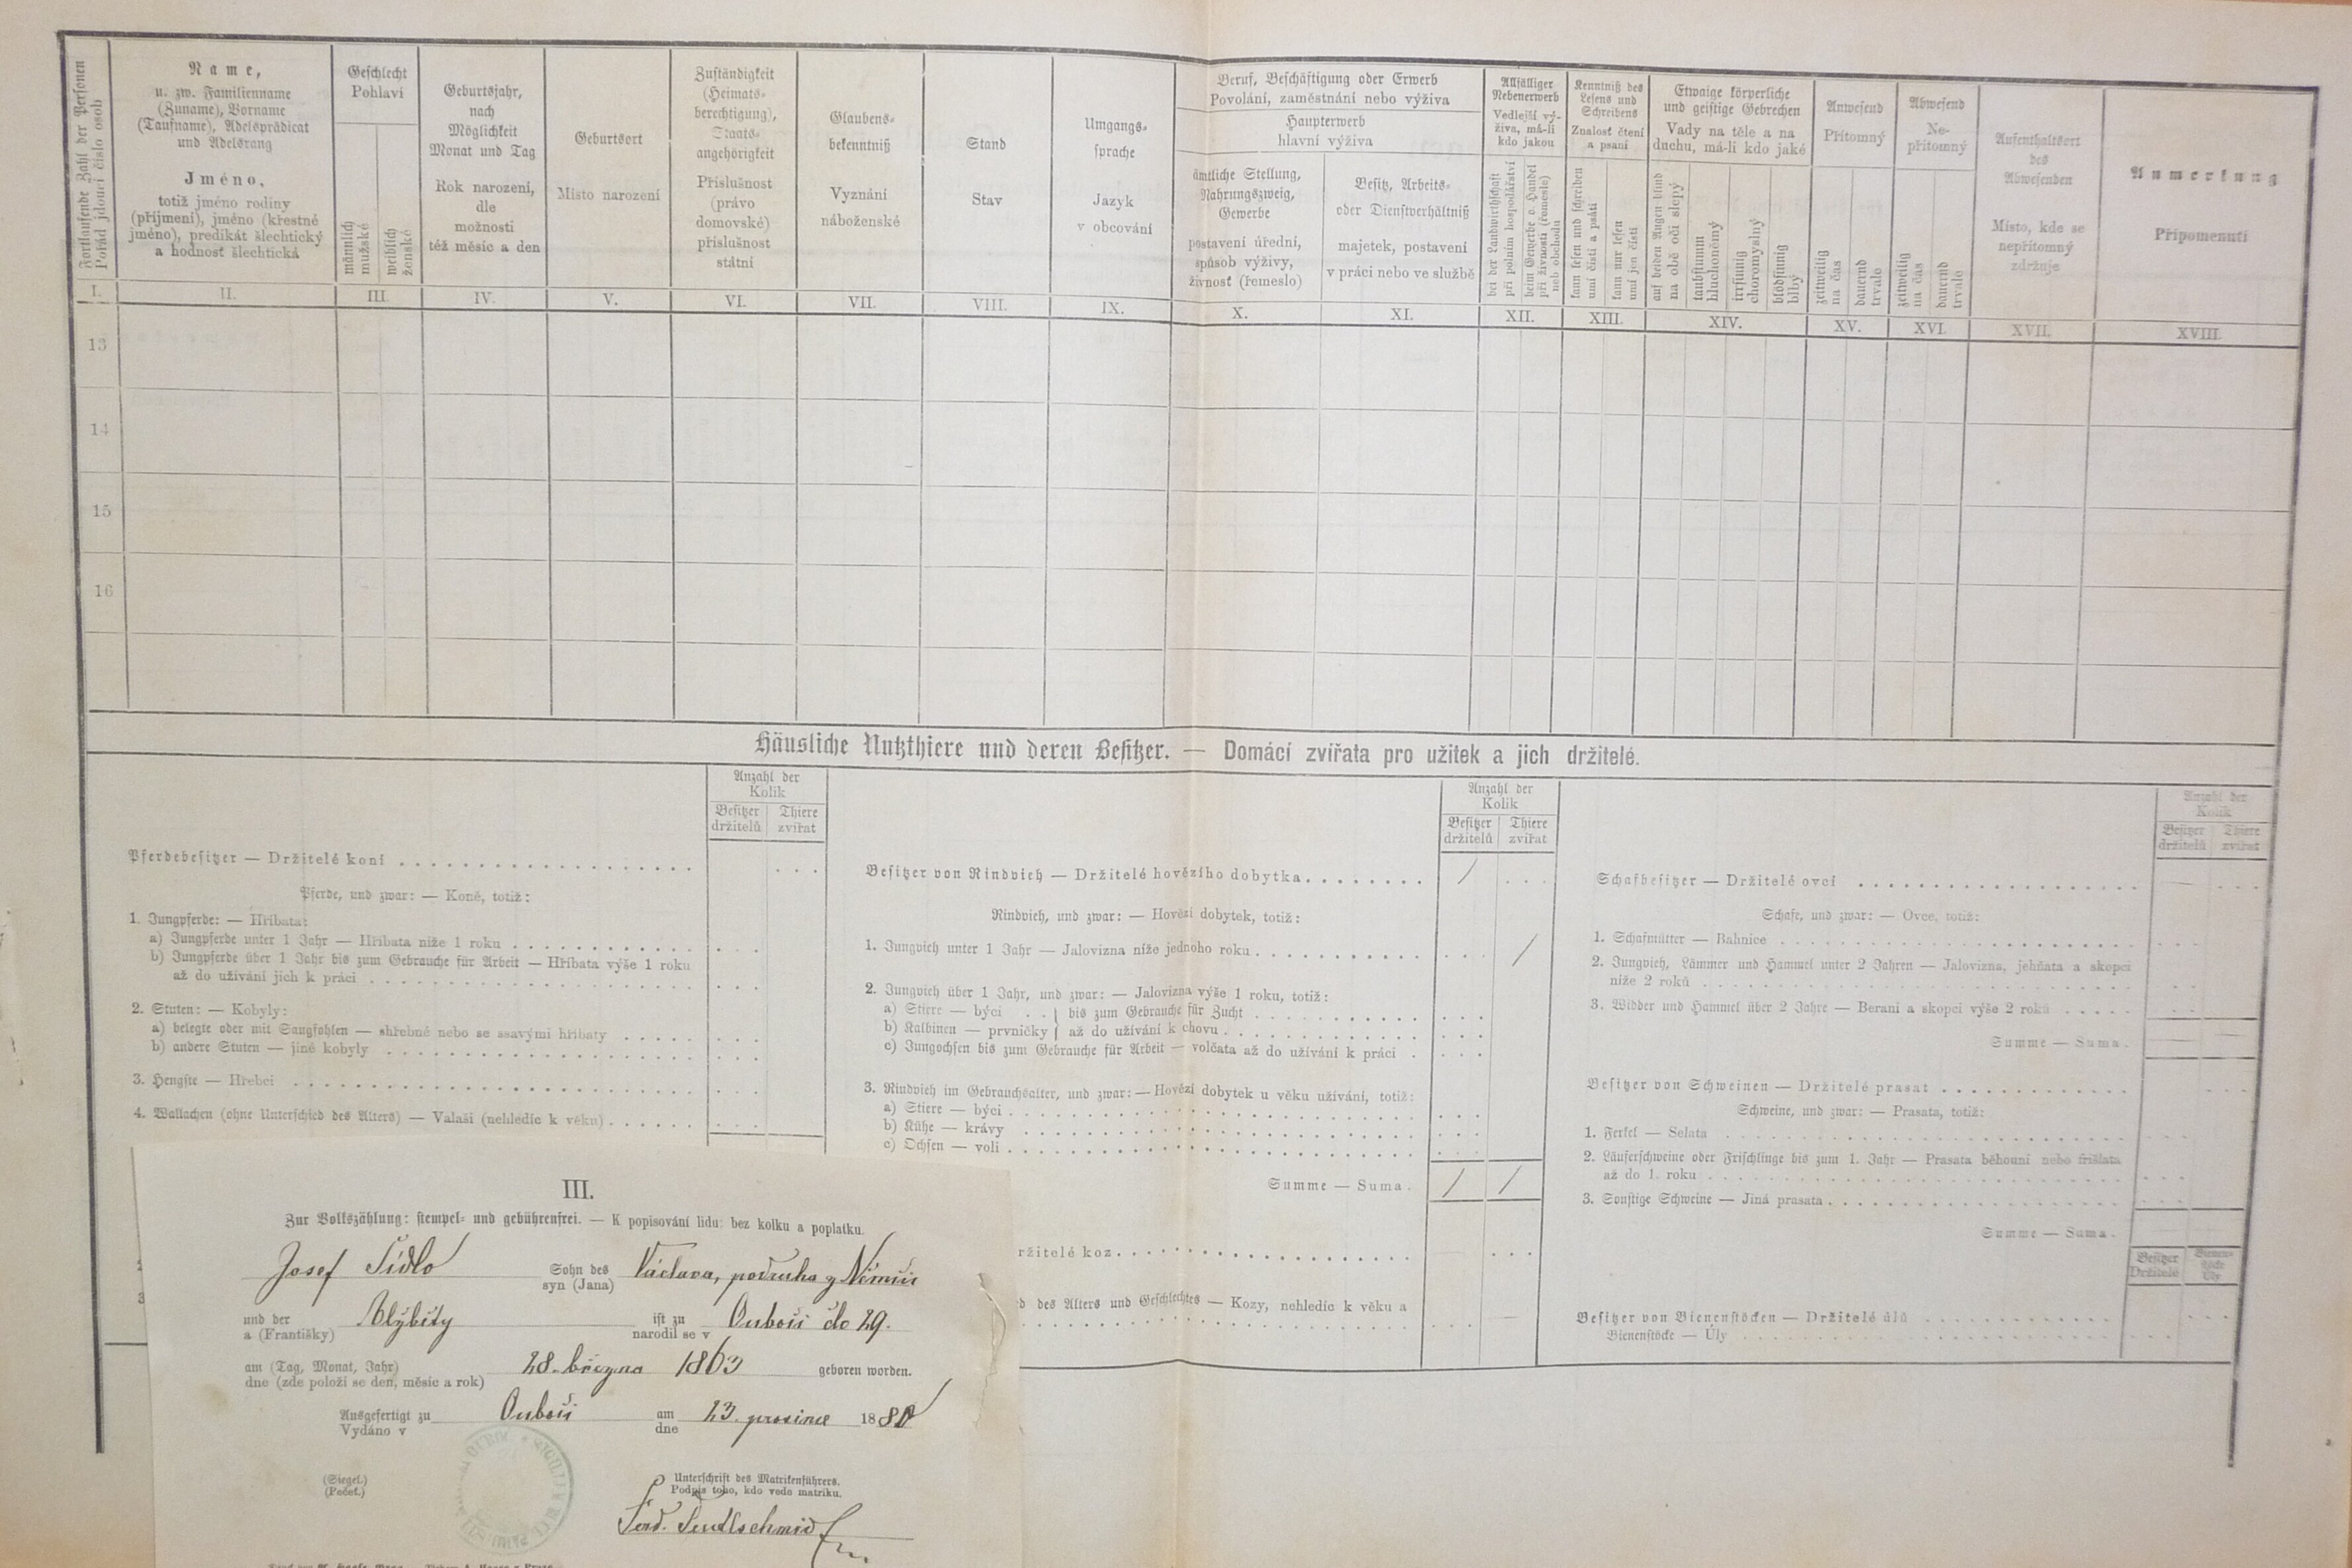 Fortlaufende Zahl der Personen
Pořád jdoucí číslo osob
Name,
u. zw. Familienname
(Zuname), Vorname
(Taufname), Adelsprädicat
und Adelsrang
Jméno,
totiž jméno rodiny
(příjmení), jméno (křestné
jméno), predikát šlechtický
a hodnosť šlechtická
Geschlecht
Pohlaví
männlich
mužské
weiblich
ženské
Geburtsjahr,
nach
Möglichkeit
Monat und Tag
Rok narození,
dle
možnosti
též měsíc a den
Geburtsort
Místo narození
Zuständigkeit
(Heimats-
berechtigung),
Staats-
angehörigkeit
Příslušnost
(právo
domovské)
příslušnost
státní
Glaubens-
bekenntniß
Vyznání
náboženské
Stand
Stav
Umgangs-
sprache
Jazyk
v obcování
Beruf, Beschäftigung oder Erwerb
Povolání, zaměstnání nebo výživa
Haupterwerb
hlavní výživa
ämtliche Stellung,
Nahrungszweig,
Gewerbe
postavení úřední,
spůsob výživy,
živnosť (řemeslo)
Besitz, Arbeits-
oder Dienstverhältniß
majetek, postavení
v práci nebo ve službě
Allfälliger
Nebenerwerb
Vedlejší vý-
živa, má-li
kdo jakou
bei der Landwirthschaft
při polním hospodářství
beim Gewerbe o. Handel
při živnosti (řemeslo)
neb obchodu
Kenntniß des
Lesens und
Schreibens
Znalosť čtení
a psaní
kann lesen und schreiben
umí čísti a psáti
kann nur lesen
umí jen čísti
Etwaige körperliche
und geistige Gebrechen
Vady na těle a na
duchu, má-li kdo jaké
auf beiden Augen blind
na obě oči slepý
taubstumm
hluchoněmý
irrsinnig
choromyslný
blödsinnig
blbý
Anwesend
Přítomný
zeitweilig
na čas
dauernd
trvale
Abwesend
Ne-
přítomný
zeitweilig
na čas
dauernd
trvale
Aufenthaltsort
des
Abwesenden
Místo, kde se
nepřítomný
zdržuje
Anmerkung
Připomenutí
I. II. III. IV. V. VI. VII. VIII. IX. X. XI. XII. XIII. XIV. XV. XVI. XVII. XVIII.
13
14
15
16
Häusliche Nutzthiere und deren Besitzer. — Domácí zvířata pro užitek a jich držitelé.
Anzahl der
Kolik
Besitzer Thiere
držitelů zvířat
Pferdebesitzer — Držitelé koní
Pferde, und zwar: — Koně, totiž:
1. Jungpferde: — Hříbata:
a) Jungpferde unter 1 Jahr — Hříbata níže 1 roku
b) Jungpferde über 1 Jahr bis zum Gebrauche für Arbeit — Hříbata výše 1 roku
až do užívání jich k práci
2. Stuten: — Kobyly:
a) belegte oder mit Saugfohlen — shřebné nebo se ssavými hříbaty
b) andere Stuten — jiné kobyly
3. Hengste — Hřebci
4. Wallachen (ohne Unterschied des Alters) — Valaši (nehledíc k věku)
Anzahl der
Kolik
Besitzer Thiere
držitelů zvířat
Besitzer von Rindvieh — Držitelé hovězího dobytka /
Rindvieh, und zwar: — Hovězí dobytek, totiž:
1. Jungvieh unter 1 Jahr — Jalovizna níže jednoho roku /
2. Jungvieh über 1 Jahr, und zwar: — Jalovizna výše 1 roku, totiž:
a) Stiere — býci bis zum Gebrauche für Zucht
b) Kalbinen — prvničky až do užívání k chovu
c) Jungochsen bis zum Gebrauche für Arbeit — volčata až do užívání k práci
3. Rindvieh im Gebrauchsalter, und zwar: — Hovězí dobytek u věku užívání, totiž:
a) Stiere — býci
b) Kühe — krávy
c) Ochsen — voli
Summe — Suma. / /
ržitelé koz
d des Alters und Geschlechtes — Kozy, nehledíc k věku a
Anzahl der
Kolik
Besitzer Thiere
držitelů zvířat
Schafbesitzer — Držitelé ovcí
Schafe, und zwar: — Ovce, totiž:
1. Schafmütter — Bahnice
2. Jungvieh, Lämmer und Hammel unter 2 Jahren — Jalovizna, jehňata a skopci
níže 2 roků
3. Widder und Hammel über 2 Jahre — Berani a skopci výše 2 roků
Summe — Suma.
Besitzer von Schweinen — Držitelé prasat
Schweine, und zwar: — Prasata, totiž:
1. Ferkel — Selata
2. Läuferschweine oder Frischlinge bis zum 1. Jahr — Prasata běhouni nebo frišlata
až do 1. roku
3. Sonstige Schweine — Jiná prasata
Summe — Suma.
Besitzer
Držitelé
Bienen-
stöcke
Úly
Besitzer von Bienenstöcken — Držitelé úlů
Bienenstöcke — Úly
III.
Zur Volkszählung: stempel- und gebührenfrei. — K popisování lidu: bez kolku a poplatku.
Josef Šídlo Sohn des Václava, podruha z
syn (Jana)
und der ist zu
a (Františky) narodil se v
am (Tag, Monat, Jahr) 28. března 1863 geboren worden.
dne (zde položí se den, měsíc a rok)
Ausgefertigt zu am 23. prosince 1880
Vydáno v dne
(Siegel.)
(Pečeť.)
Unterschrift des Matrikenführers.
Podpis toho, kdo vede matriku.